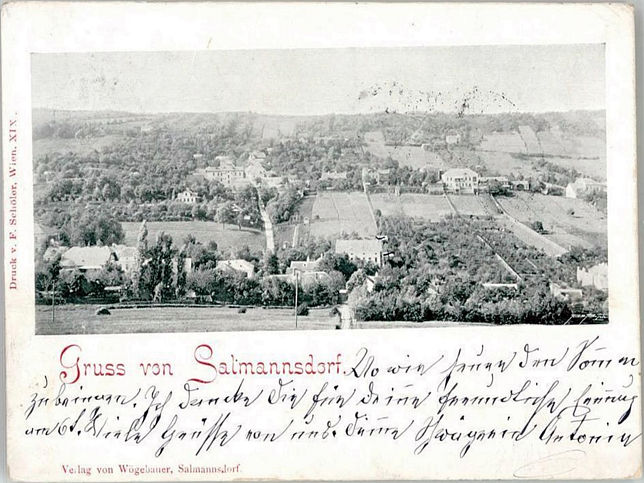 Druck v. F. Schöler, Wien, XIX.
Gruss von Salmannsdorf. Wo wir heuer den Sommer
zubringen. Ich danke dir für deine freundliche
am 6t. Viele Grüsse von uns. Deine Schwägerin Antonia
Verlag von Wögebauer, Salmannsdorf.